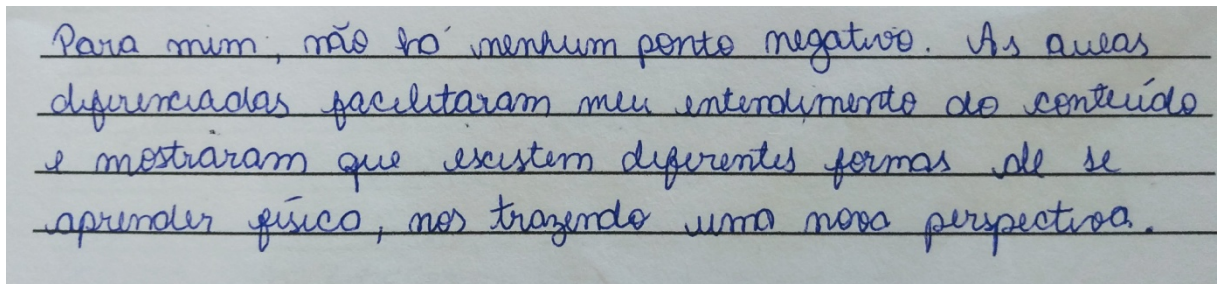 Para mim, não há nenhum ponto negativo. As aulas
diferenciadas facilitaram meu entendimento do conteúdo
e mostraram que existem diferentes formas de se
aprender física, nos trazendo uma nova perspectiva.